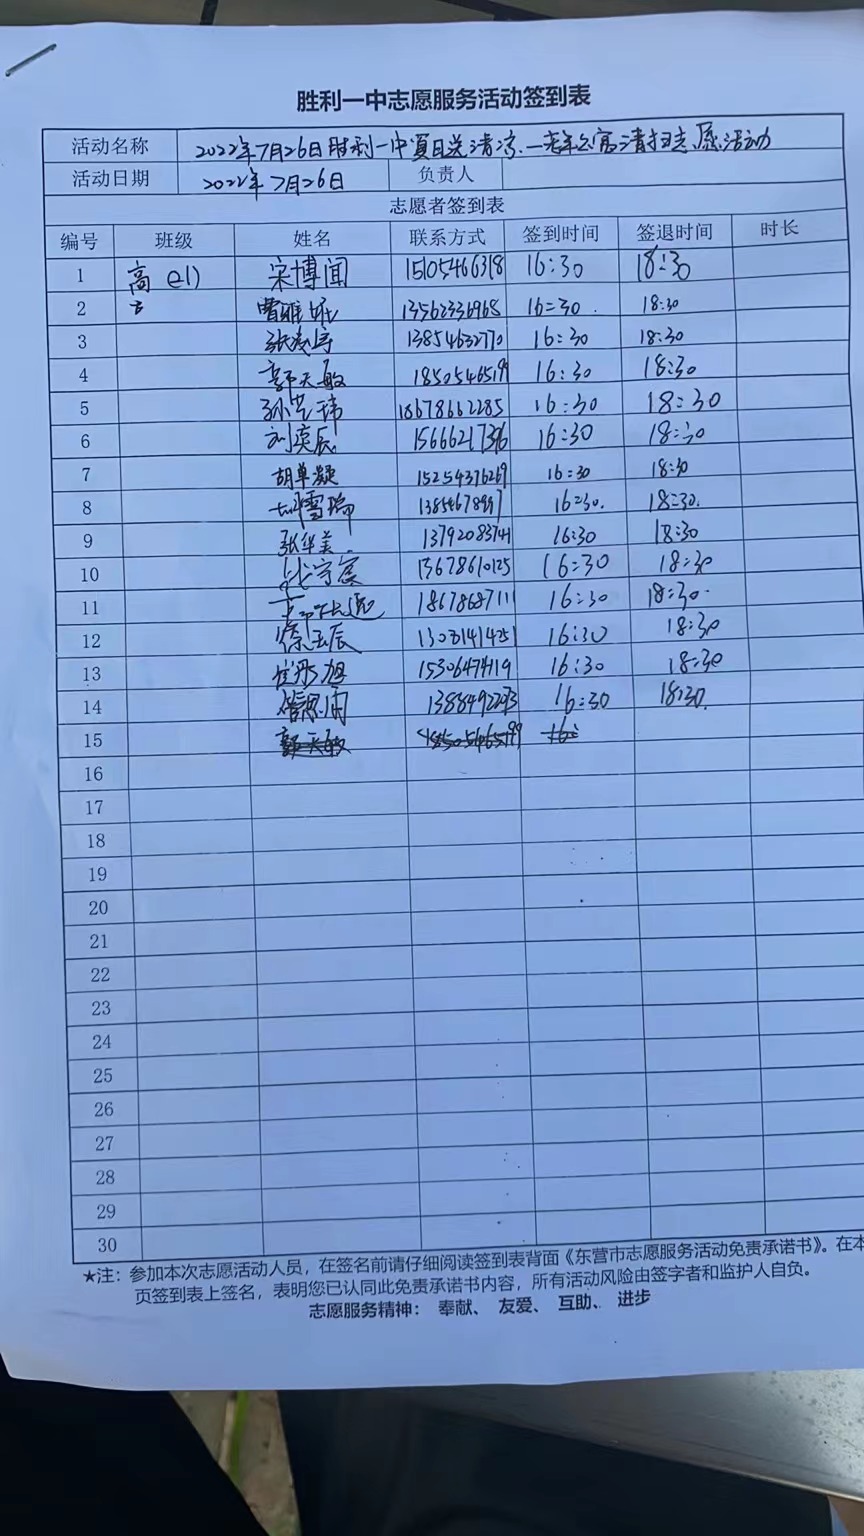 胜利一中志愿服务活动签到表
活动名称 2022年7月26日胜利一中夏日送清凉 一老年公寓清扫志愿活动
活动日期 2022年7月26日 负责人
志愿者签到表
编号 班级 姓名 联系方式 签到时间 签退时间 时长
1 高 (21) 宋博闻 15105466318 16:30 18:30
2 13562336968 16:30 18:30
3 13854632770 16:30 18:30
4 郭天敏 16:30 18:30
5 18678662285 16:30 18:30
6 刘奕辰 16:30 18:30
7 胡单凝 15254376269 16:30 18:30
8 16:30 18:30
9 张华美 13792083741 16:30 18:30
10 13678610125 16:30 18:30
11 18678687111 16:30 18:30
12 徐玉辰 16:30 18:30
13 崔彤旭 15306474119 16:30 18:30
14 16:30 18:30
15
16
17
18
19
20
21
22
23
24
25
26
27
28
29
30
★注：参加本次志愿活动人员，在签名前请仔细阅读签到表背面《东营市志愿服务活动免责承诺书》。在本
页签到表上签名，表明您已认同此免责承诺书内容，所有活动风险由签字者和监护人自负。
志愿服务精神： 奉献、 友爱、 互助、 进步